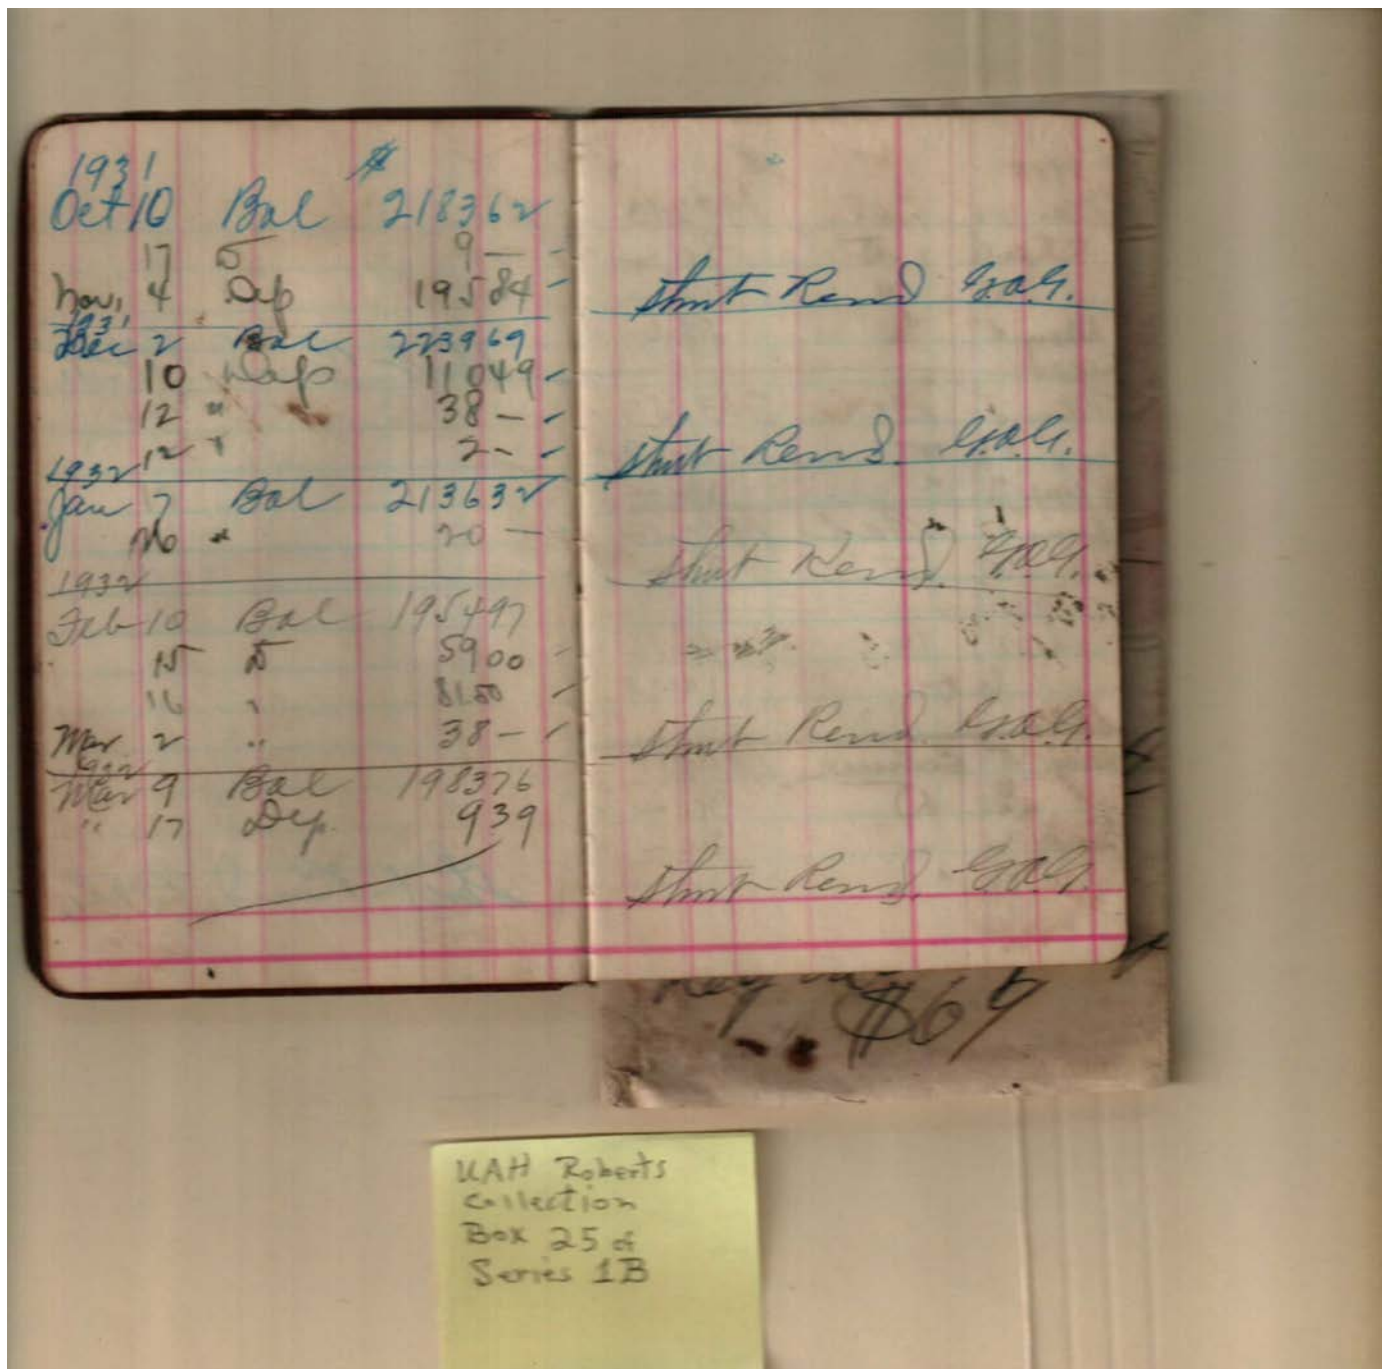 1931 $
Oct 10 Bal 218362
17 D 9 —
Nov. 4 Dep 19584
1931
Dec 2 Bal 223969
10 Dep 11049
12 " 38 —
12 " 2 -
1932
Jan 7 Bal 213632
26 " 20 —
1932
Feb 10 Bal 195497
15 D 5900
16 " 8150
Mar 2 " 38 —
1932
Mar 9 Bal 198376
" 17 Dep. 939
Stmt Rend. G.A.G.
Stmt Rend. G.A.G.
Stmt Rend. G.A.G.
Stmt Rend. G.A.G.
Stmt Rend. G.A.G.
UAH Roberts
Collection
Box 25 of
Series 1B